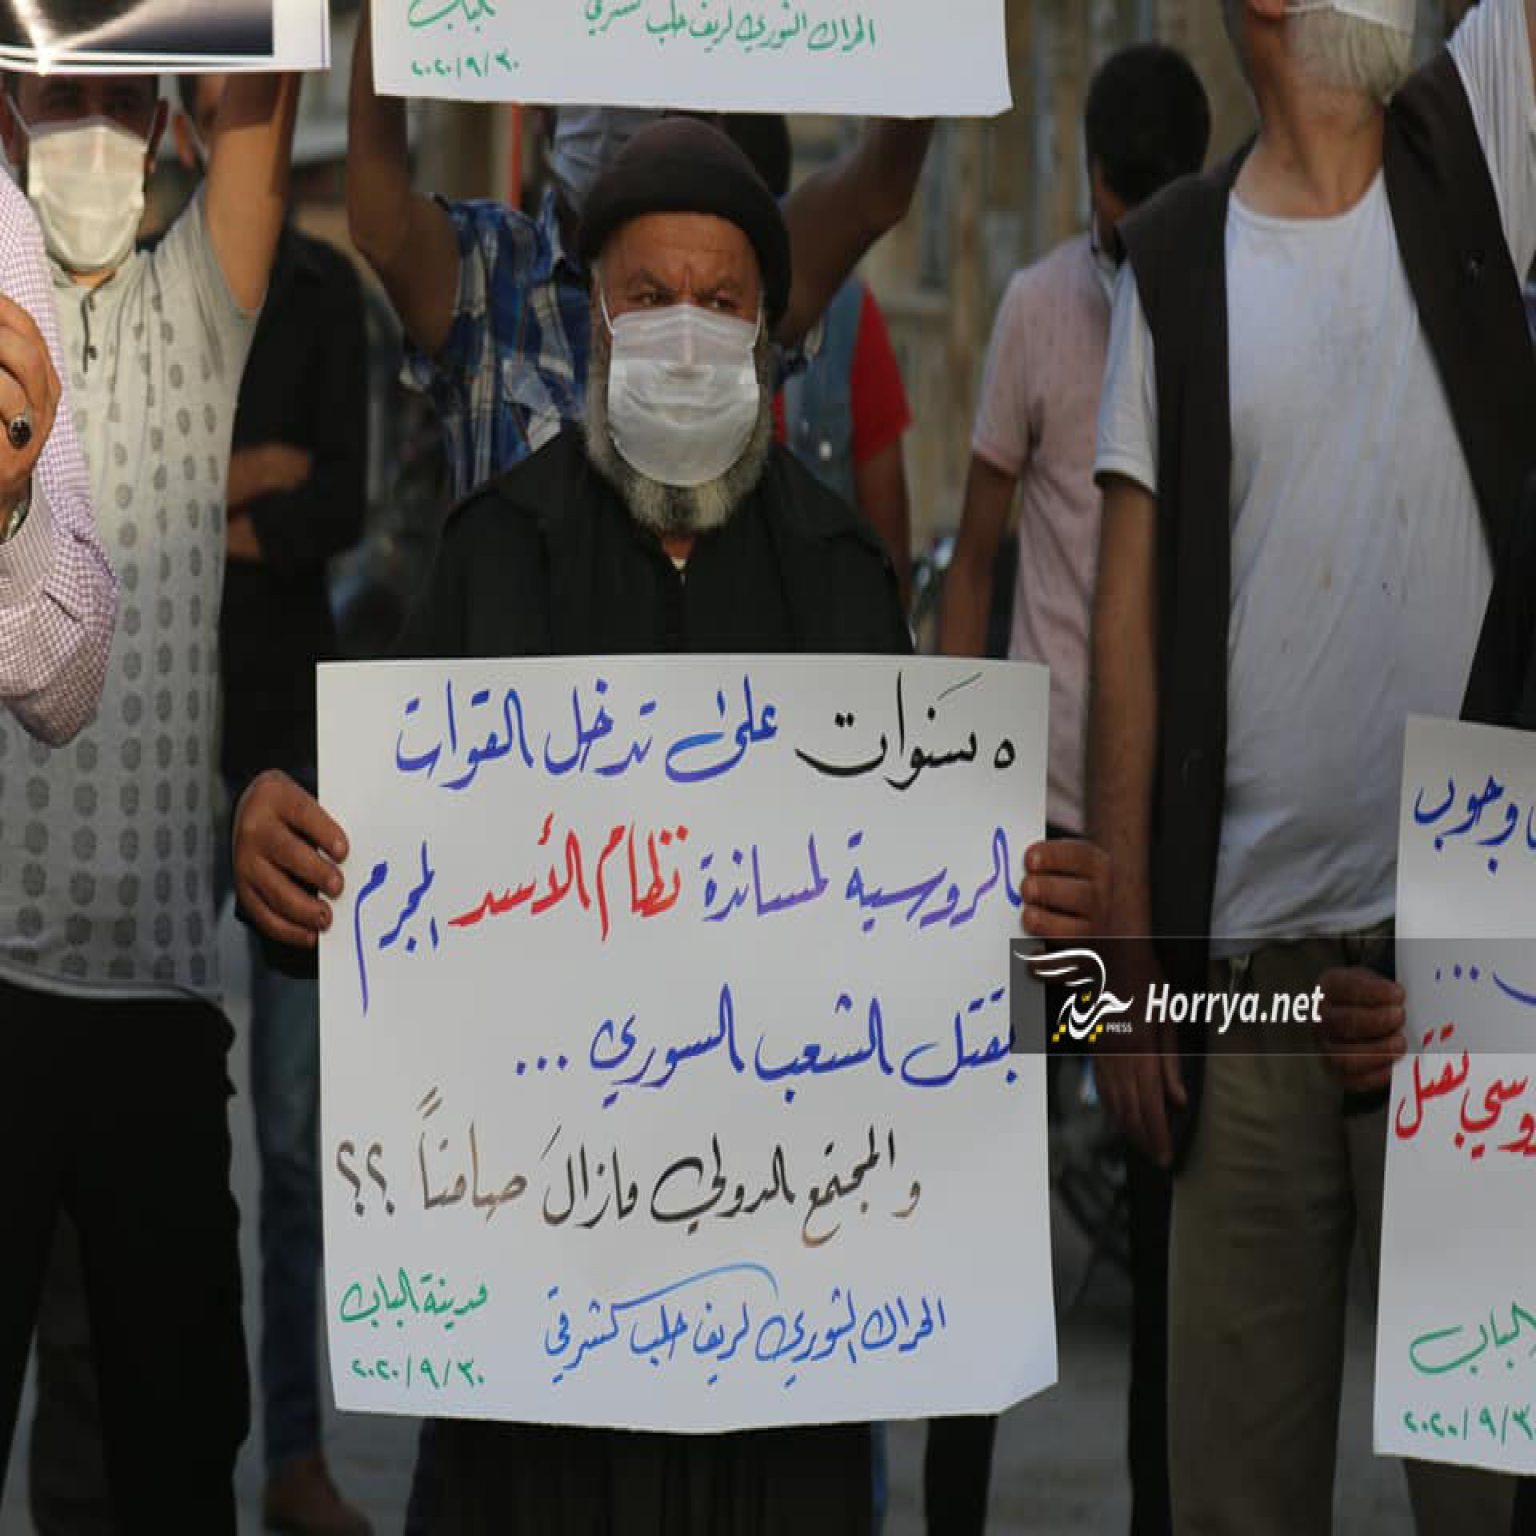 الحراك الثوري لريف حلب الشرقي
الباب
٢٠٢٠/٩/٣٠
٥ سَنوات على تدخل القوات
الروسية لمساندة نظام الأسد المجرم
بقتل الشعب السوري ...
والمجتمع الدولي مازالَ صامتاً ؟؟
الحراك الثوري لريف حلب الشرقي
مدينة الباب
٢٠٢٠/٩/٣٠
وجوب
...
بقتل
الباب
٢٠٢٠/٩/٣٠
حرية
PRESS
Horrya.net